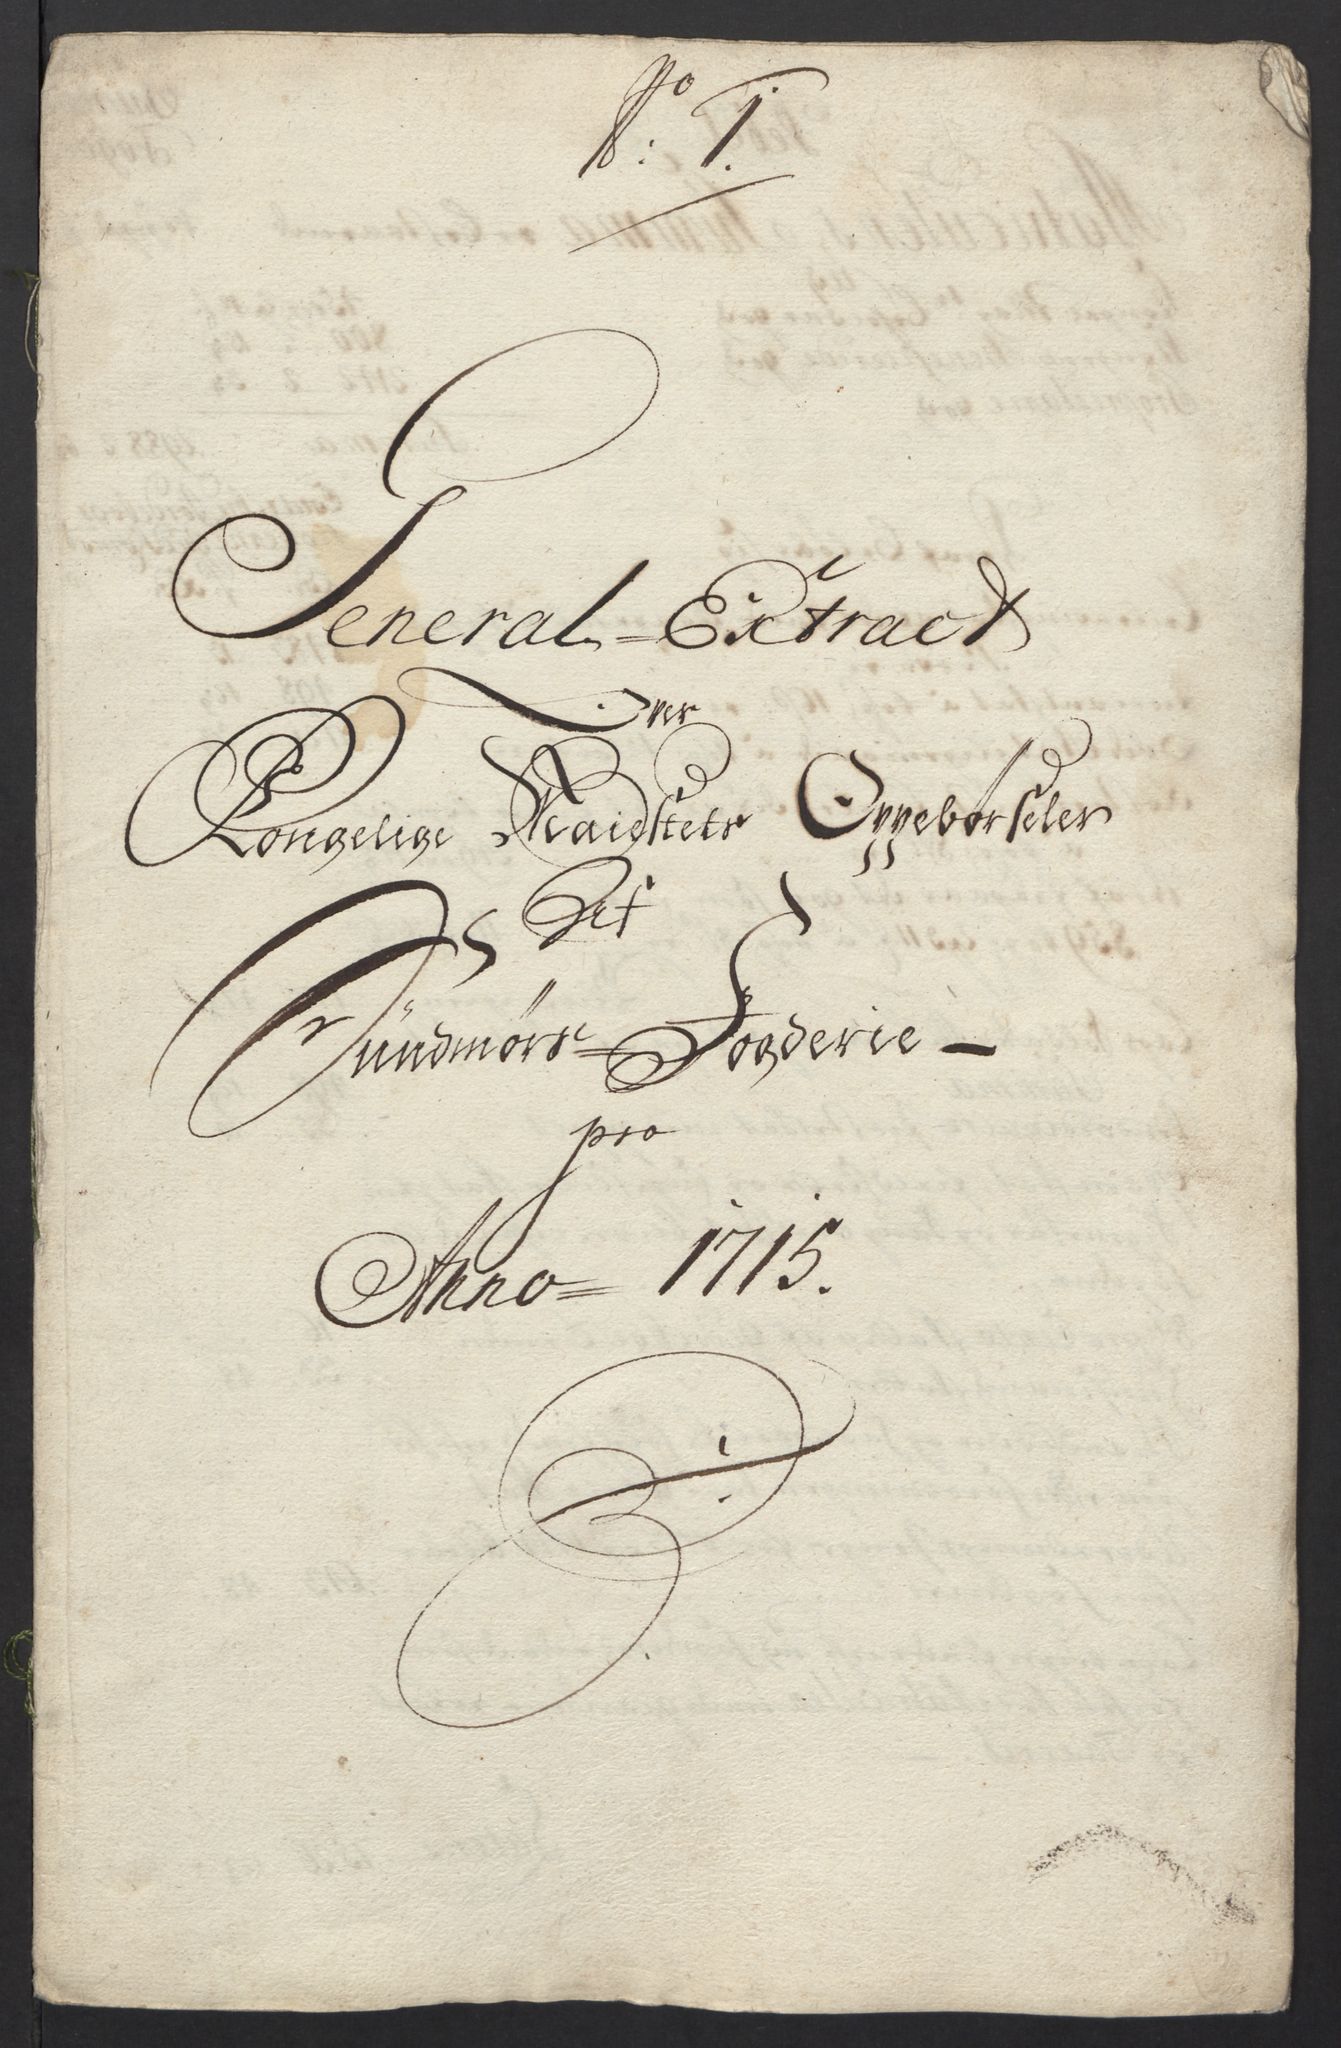 No: 1.
General Extract
Over
Kongelige Maiesttets Oppebørseler
Af
Sündmørs Fogderie
pro
Anno 1715.